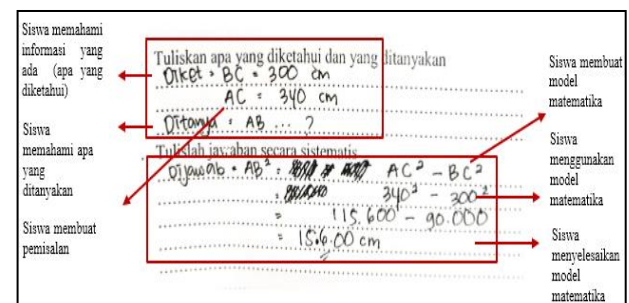 Siswa memahami
informasi yang
ada (apa yang
diketahui)
Siswa
memahami apa
yang
ditanyakan
Siswa membuat
pemisalan
Tuliskan apa yang diketahui dan yang ditanyakan
Diket = BC = 300 cm
AC = 340 cm
Ditanya = AB ... ?
Tulislah jawaban secara sistematis
Dijawab = AB² = AC² - BC²
= 340² - 300²
= 115.600 - 90.000
= 15.600 cm
Siswa membuat
model
matematika
Siswa
menggunakan
model
matematika
Siswa
menyelesaikan
model
matematika